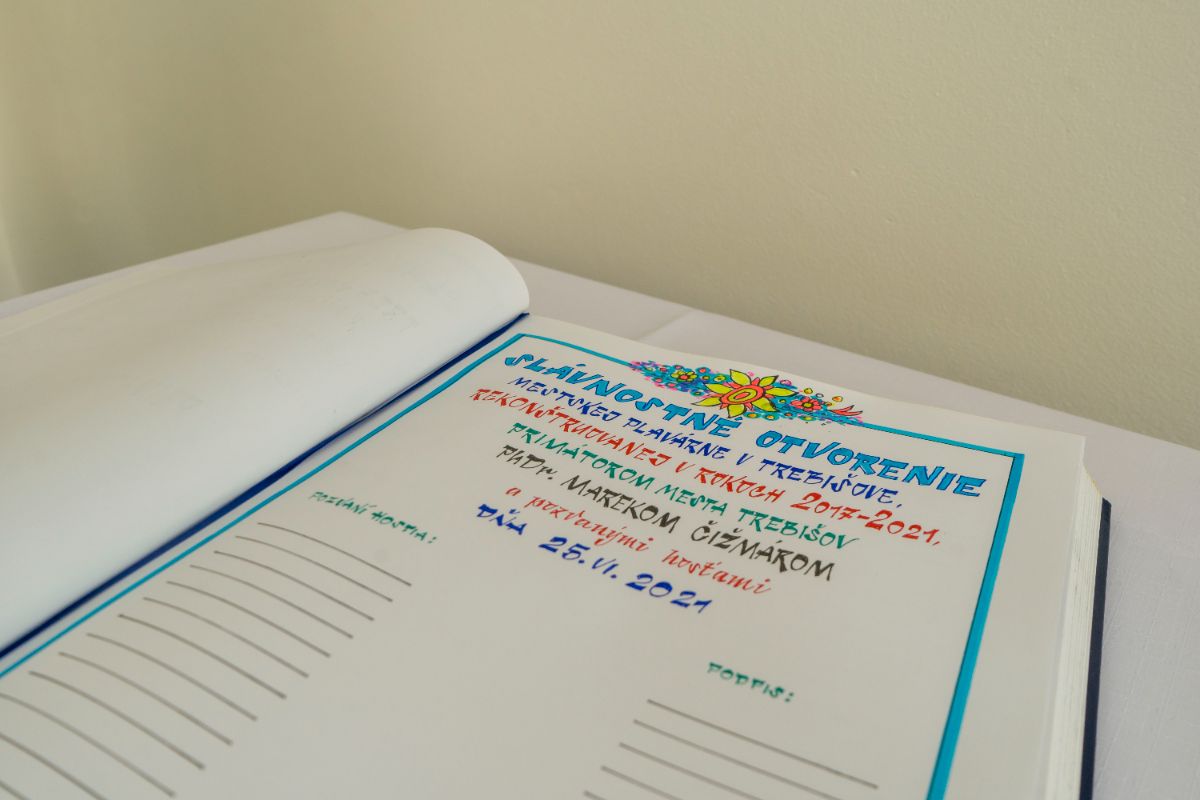 SLÁVNOSTNÉ OTVORENIE
MESTSKEJ PLAVÁRNE V TREBIŠOVE,
REKONŠTRUOVANEJ V ROKOCH 2017-2021,
PRIMÁTOROM MESTA TREBIŠOV
PhDr. MAREKOM ČIŽMÁROM
a pozvanými hosťami
DŇA 25. VI. 2021
POZVANÍ HOSTIA:
PODPIS: